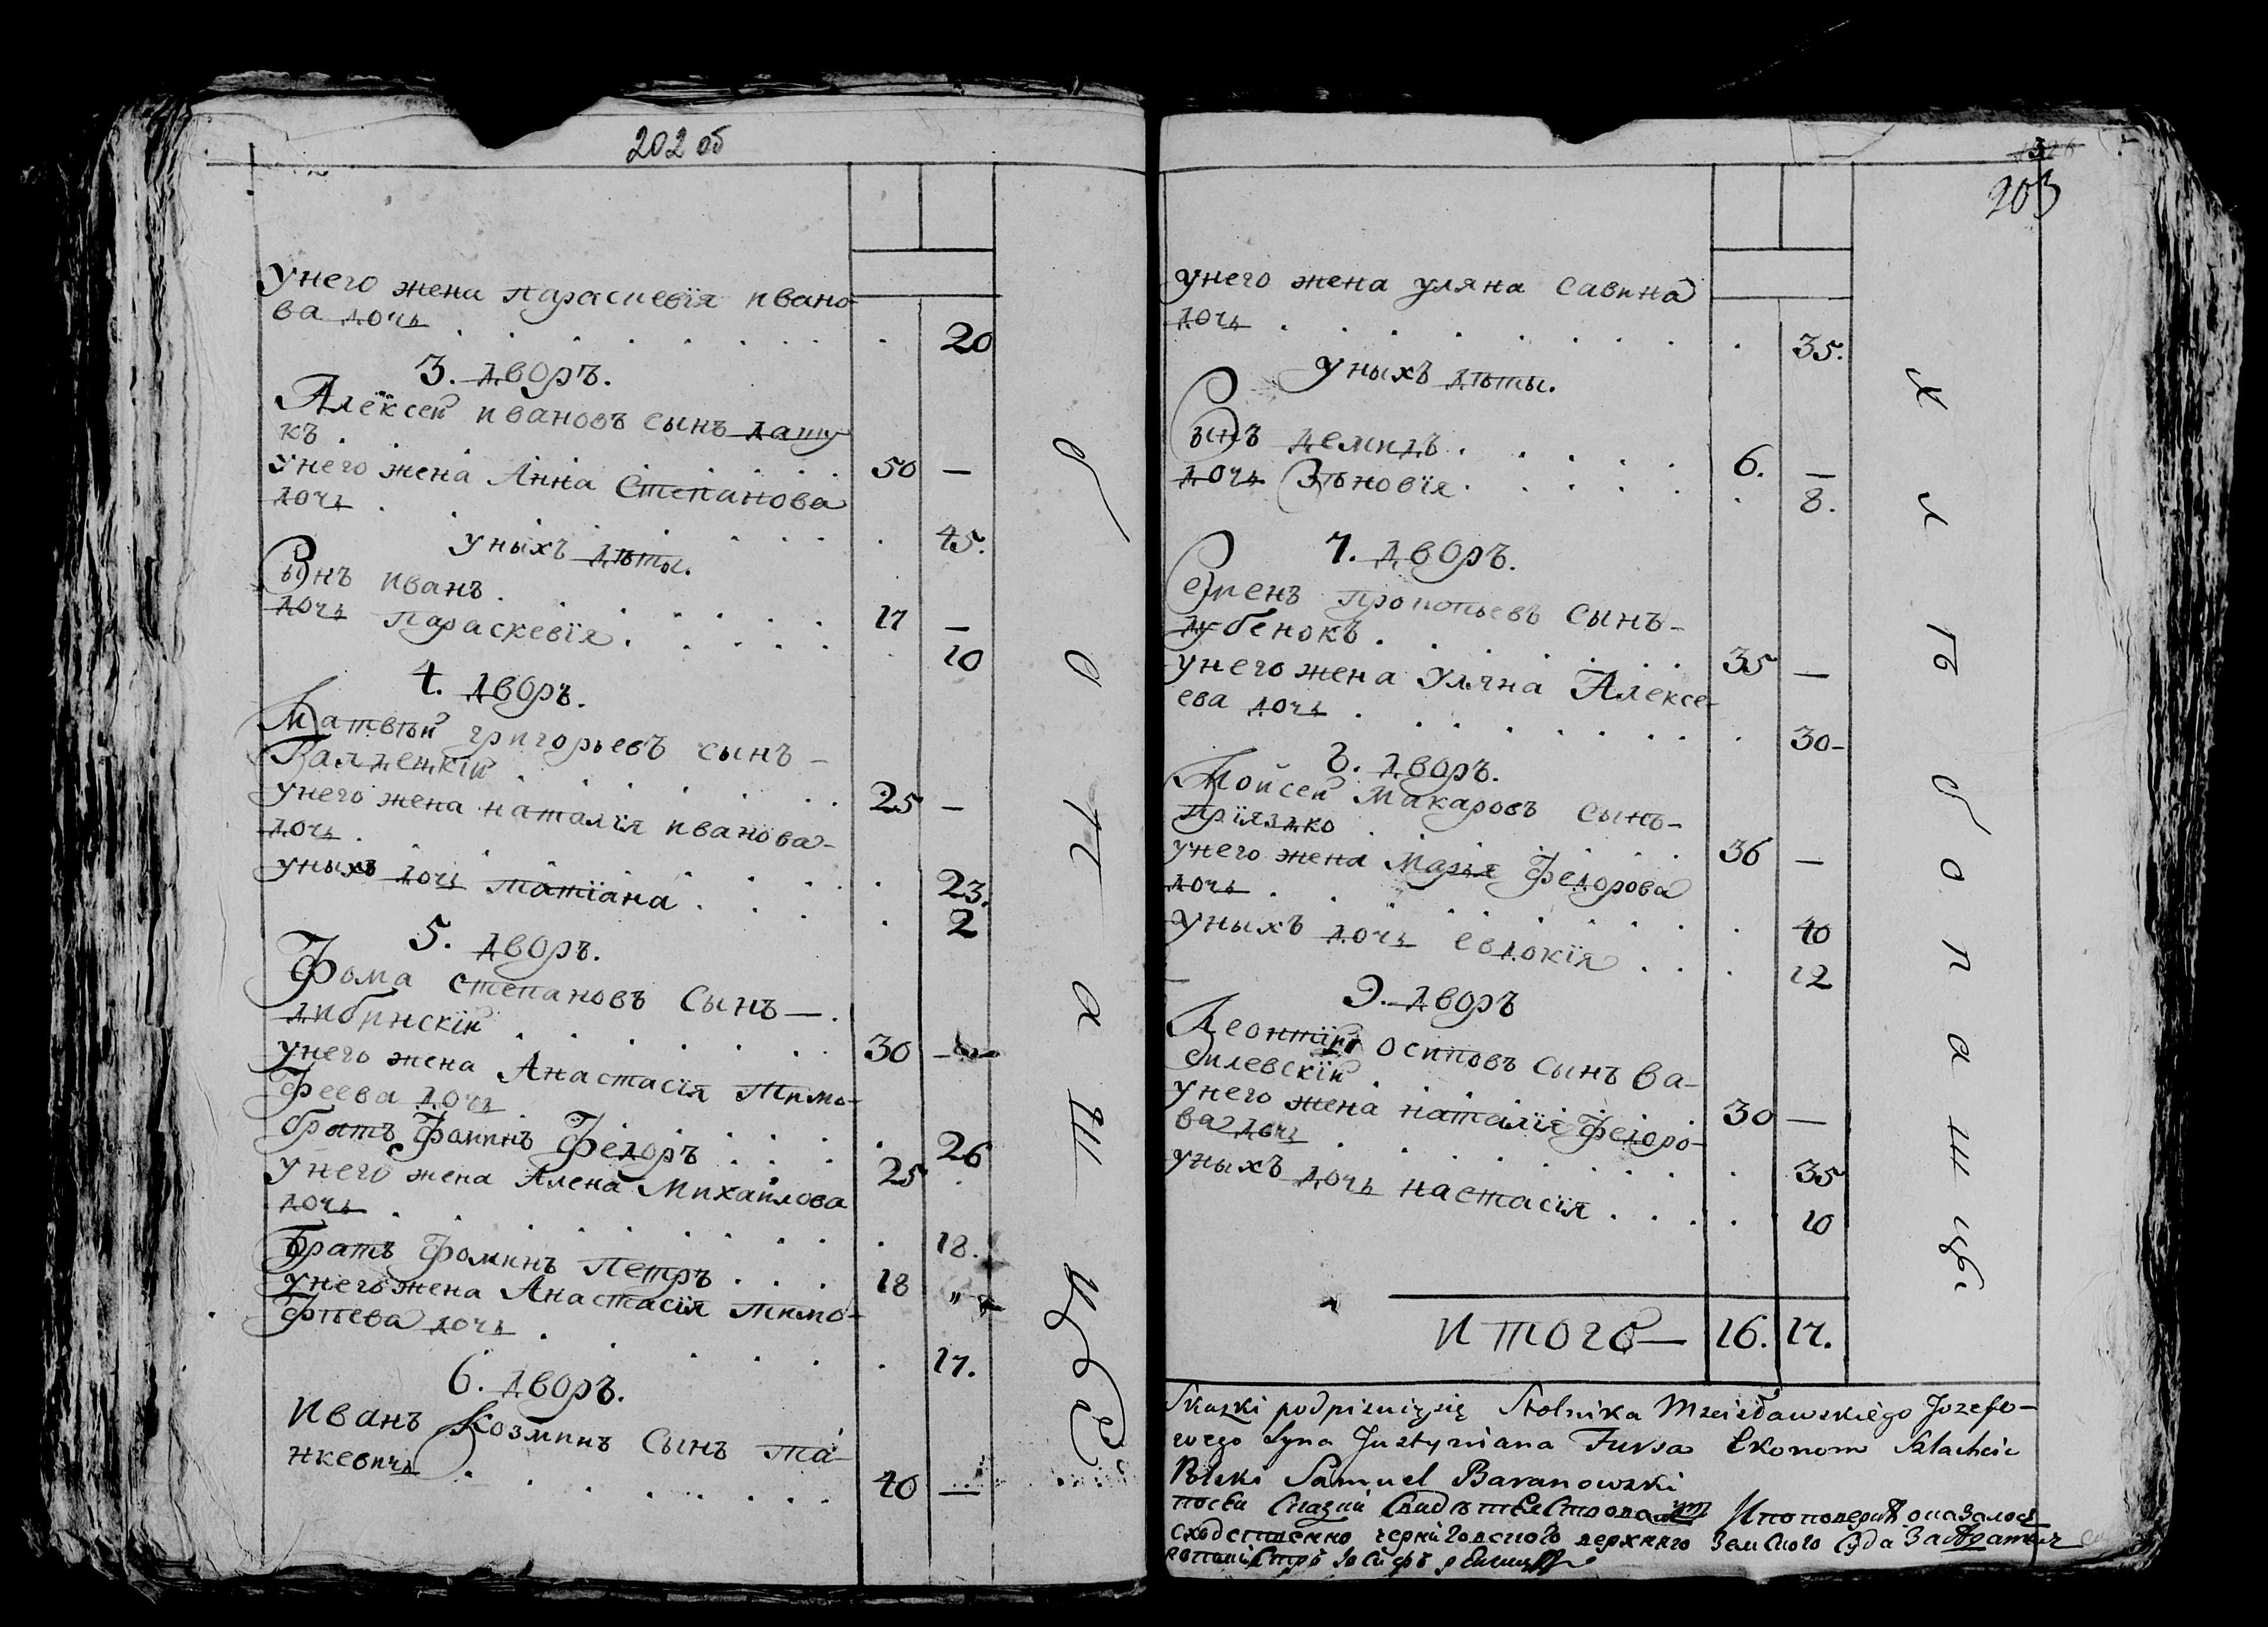 202 об
У него жена Параскевїя Ивано-
ва дочь . . . . . . . . 20
3. дворъ.
Алексей Ивановъ сынъ Дашу
къ . . . . . . . 50 —
У него жена Анна Степанова
дочь . . . . . . . 45.
У ныхъ дѣты.
Сынъ Иванъ . . . . . . 17 —
дочь Параскевїя . . . . . 10
4. дворъ.
Матвѣй Григорьевъ сынъ —
. . . . . . . 25 —
У него жена Наталїя Иванова
дочь . . . . . . . 23.
У ныхъ дочь Татїана . . . . 2
5. дворъ.
Фома Степановъ сынъ — .
Дибринскїй . . . . . . 30 —
У него жена Анастасїя Тимо-
феева дочь . . . . . . 26
братъ Фоминъ Федоръ . . . 25 .
У него жена Алена Михайлова
дочь . . . . . . . 18.
братъ Фоминъ Петръ . . . 18 „
У него жена Анастасїя Тимо-
фѣева дочь . . . . . . 17.
6. дворъ.
Иванъ Козминъ сынъ Та-
нкевичь . . . . . . . 40 —
203
У него жена Уляна Савина
дочь . . . . . . . . 35.
У ныхъ дѣты.
Сынъ Демидъ . . . . . 6. —
дочь Зѣновїя . . . . . . 8.
7. дворъ.
Семенъ Прокопьевъ сынъ —
Дубенокъ . . . . . . 35 —
У него жена Уляна Алексе-
ева дочь . . . . . . . 30 —
8. дворъ.
Мойсей Макаровъ сынъ —
Прїяздко . . . . . . 36 —
У него жена Марья Федорова
дочь . . . . . . . . 40
У ныхъ дочь Евдокїя . . . . 12
9. дворъ
Леонтїй Осиповъ сынъ Ва-
силевскїй . . . . . . 30 —
У него жена Наталїя Федоро-
ва дочь . . . . . . . 35
У ныхъ дочь Настасїя . . . . 10
Итого — 16. 17.
Skazki podpisuię się Stolnika Mscisławskiego Jozefo-
wego Syna Justyniana Fursa Ekonom Szlachcic
Polski Samuel Baranowski
по сей сказки И по поверке оказалось
сходственно черниговского верхнего земского суда заседатель